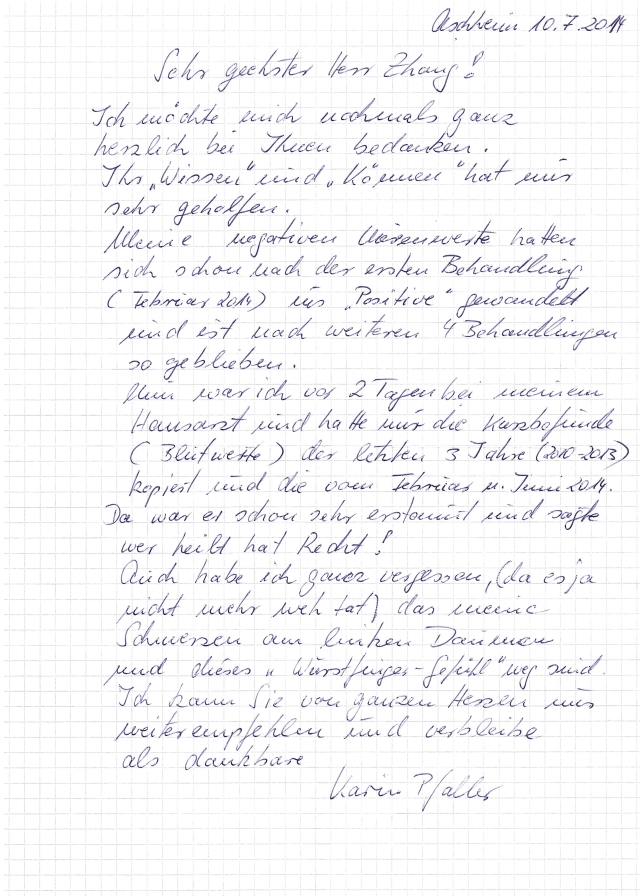 Aschheim 10.7.2014
Sehr geehrter Herr Zhang!
Ich möchte mich nochmals ganz
herzlich bei Ihnen bedanken.
Ihr „Wissen" und „Können" hat mir
sehr geholfen.
Meine negativen Nierenwerte hatten
sich schon nach der ersten Behandlung
(Februar 2014) ins „Positive" gewandelt
und ist nach weiteren 4 Behandlungen
so geblieben.
Nun war ich vor 2 Tagen bei meinem
Hausarzt und hatte mir die Kurzbefunde
(Blutwerte) der letzten 3 Jahre (2010-2013)
kopiert und die vom Februar u. Juni 2014.
Da war er schon sehr erstaunt und sagte
wer heilt hat Recht!
Auch habe ich ganz vergessen, (da es ja
nicht mehr weh tat) das meine
Schmerzen am linken Daumen
und dieses „Wurstfinger-Gefühl" weg sind.
Ich kann Sie von ganzen Herzen nur
weiterempfehlen und verbleibe
als dankbare
Karin Pfaller